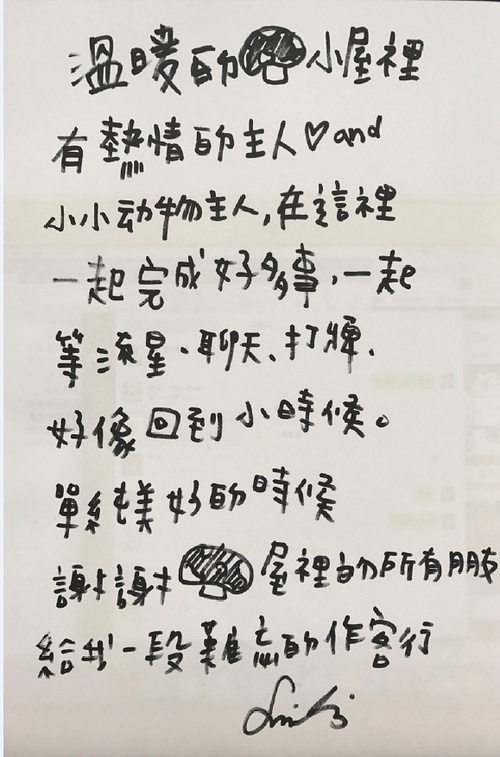 溫暖的小屋裡
有熱情的主人♡and
小小动物主人,在這裡
一起完成好多事,一起
等流星、聊天、打牌、
好像回到小時候。
單純美好的時候
謝謝屋裡的所有朋友
給我一段難忘的作客行